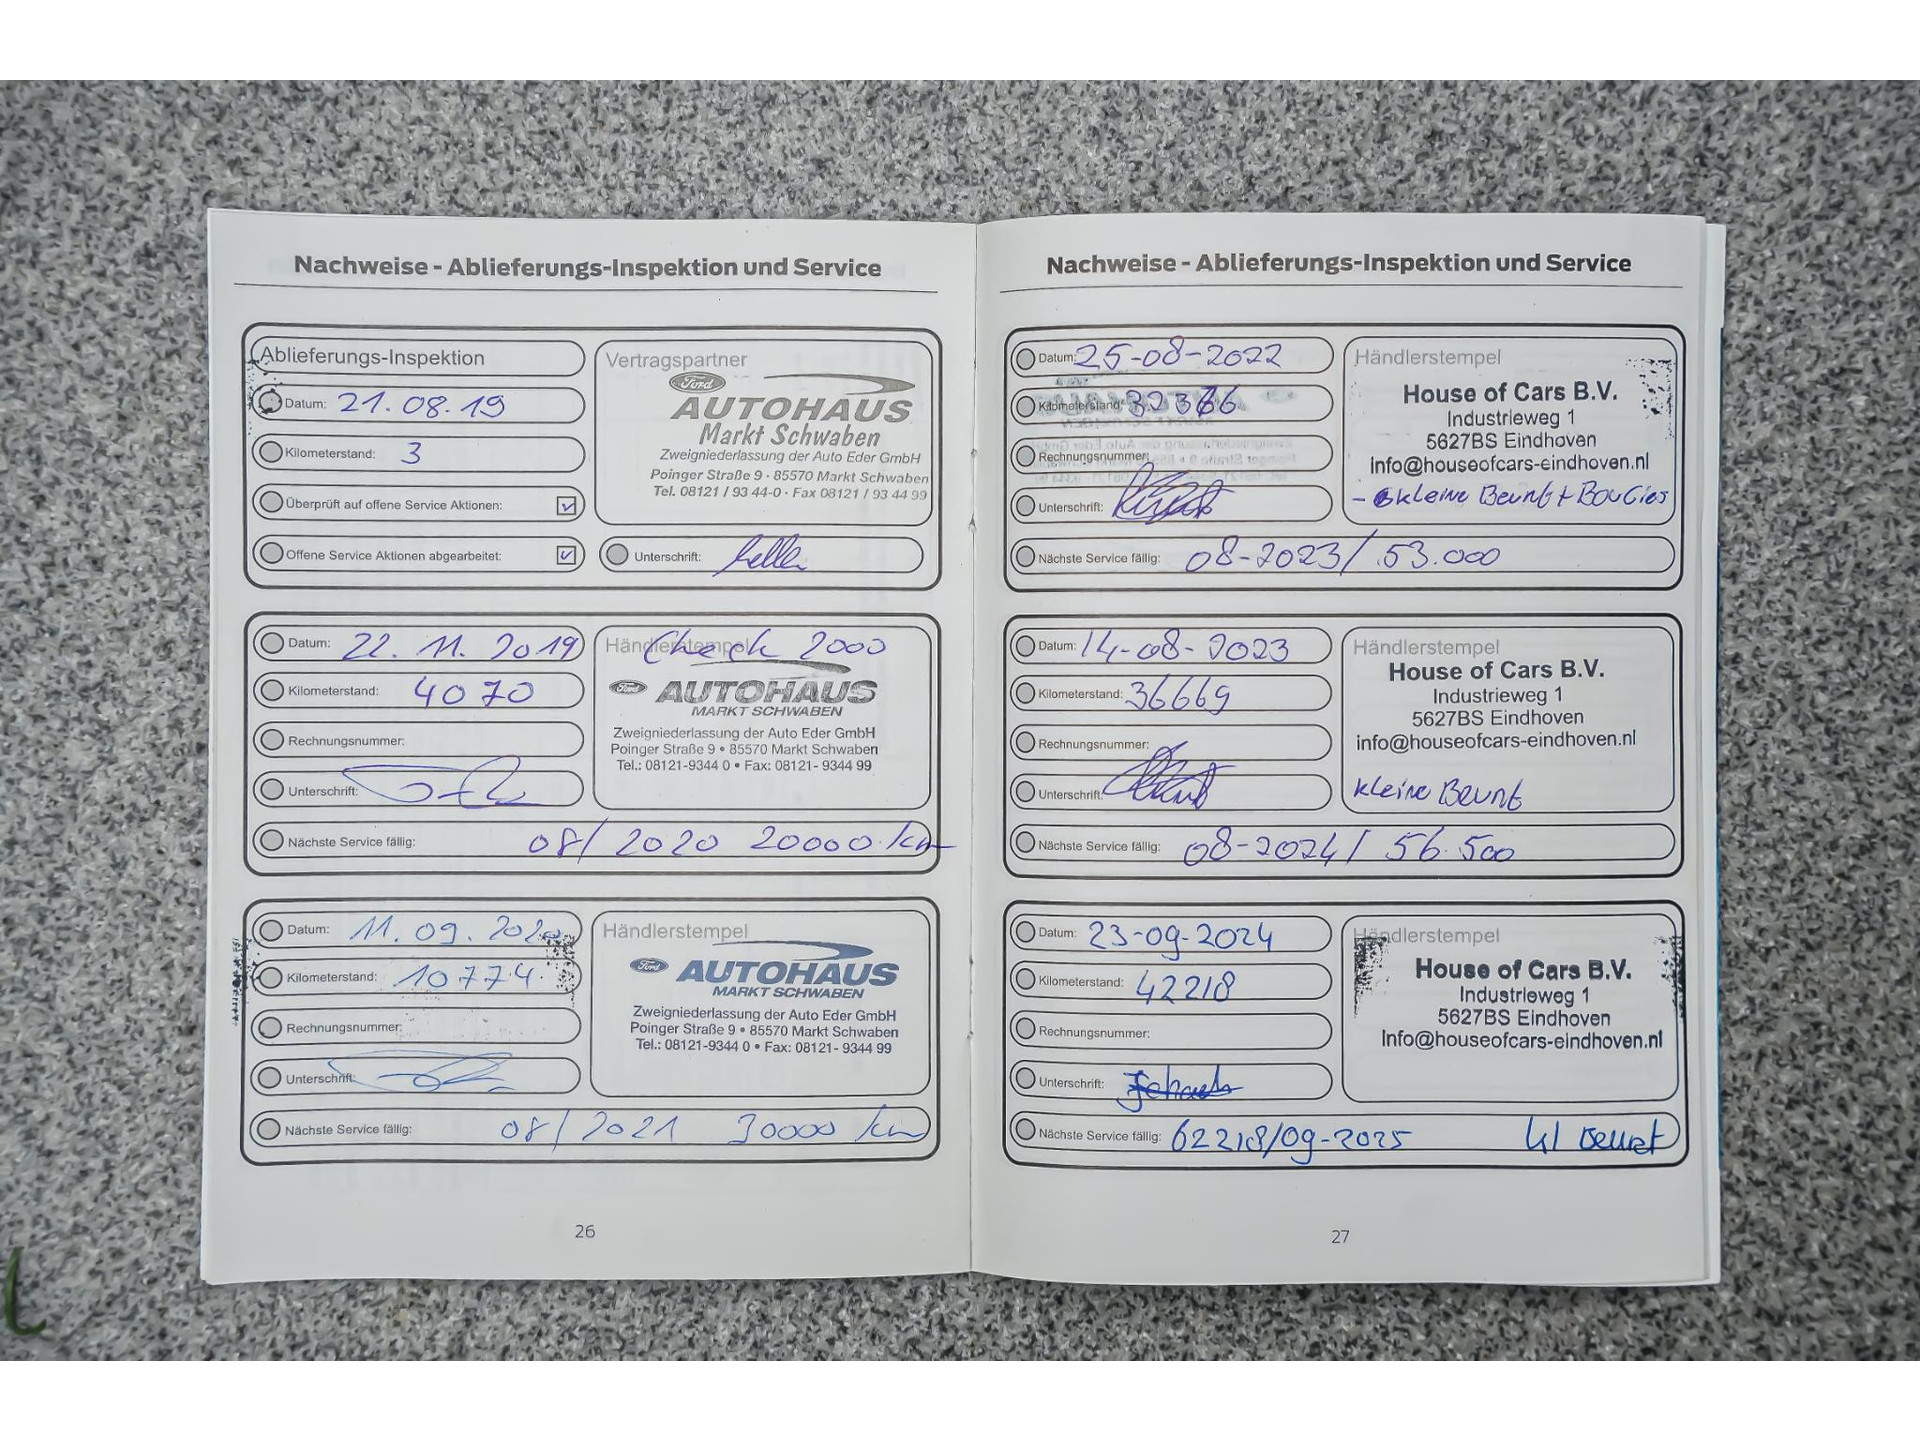 Nachweise - Ablieferungs-Inspektion und Service
Ablieferungs-Inspektion
Datum: 21.08.19
Kilometerstand: 3
Überprüft auf offene Service Aktionen:
Offene Service Aktionen abgearbeitet:
Vertragspartner
Ford
AUTOHAUS
Markt Schwaben
Zweigniederlassung der Auto Eder GmbH
Poinger Straße 9 · 85570 Markt Schwaben
Tel. 08121 / 93 44-0 · Fax 08121 / 93 44 99
Unterschrift:
Datum: 22. 11. 2019
Kilometerstand: 4070
Rechnungsnummer:
Unterschrift:
Händlerstempel Check 2000
Ford AUTOHAUS
MARKT SCHWABEN
Zweigniederlassung der Auto Eder GmbH
Poinger Straße 9 • 85570 Markt Schwaben
Tel.: 08121-9344 0 • Fax: 08121- 9344 99
Nächste Service fällig: 08/2020 20000 km
Datum: 11. 09. 2020
Kilometerstand: 10774
Rechnungsnummer:
Unterschrift:
Händlerstempel
Ford AUTOHAUS
MARKT SCHWABEN
Zweigniederlassung der Auto Eder GmbH
Poinger Straße 9 • 85570 Markt Schwaben
Tel.: 08121-9344 0 • Fax: 08121- 9344 99
Nächste Service fällig: 08/2021 30000 km
26
Nachweise - Ablieferungs-Inspektion und Service
Datum: 25-08-2022
Kilometerstand:
Rechnungsnummer:
Unterschrift:
Händlerstempel
House of Cars B.V.
Industrieweg 1
5627BS Eindhoven
info@houseofcars-eindhoven.nl
- kleine Beurt + Bougies
Nächste Service fällig: 08-2023/ 53.000
Datum: 14-08-2023
Kilometerstand: 36669
Rechnungsnummer:
Unterschrift:
Händlerstempel
House of Cars B.V.
Industrieweg 1
5627BS Eindhoven
info@houseofcars-eindhoven.nl
kleine Beurt
Nächste Service fällig: 08-2024/ 56.500
Datum: 23-09-2024
Kilometerstand: 42218
Rechnungsnummer:
Unterschrift:
Händlerstempel
House of Cars B.V.
Industrieweg 1
5627BS Eindhoven
info@houseofcars-eindhoven.nl
Nächste Service fällig: 62218/09-2025 kl Beurt
27